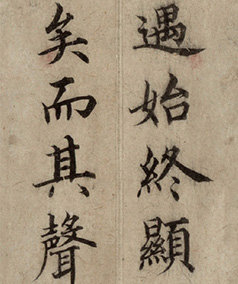 遇始終顯
矣而其聲